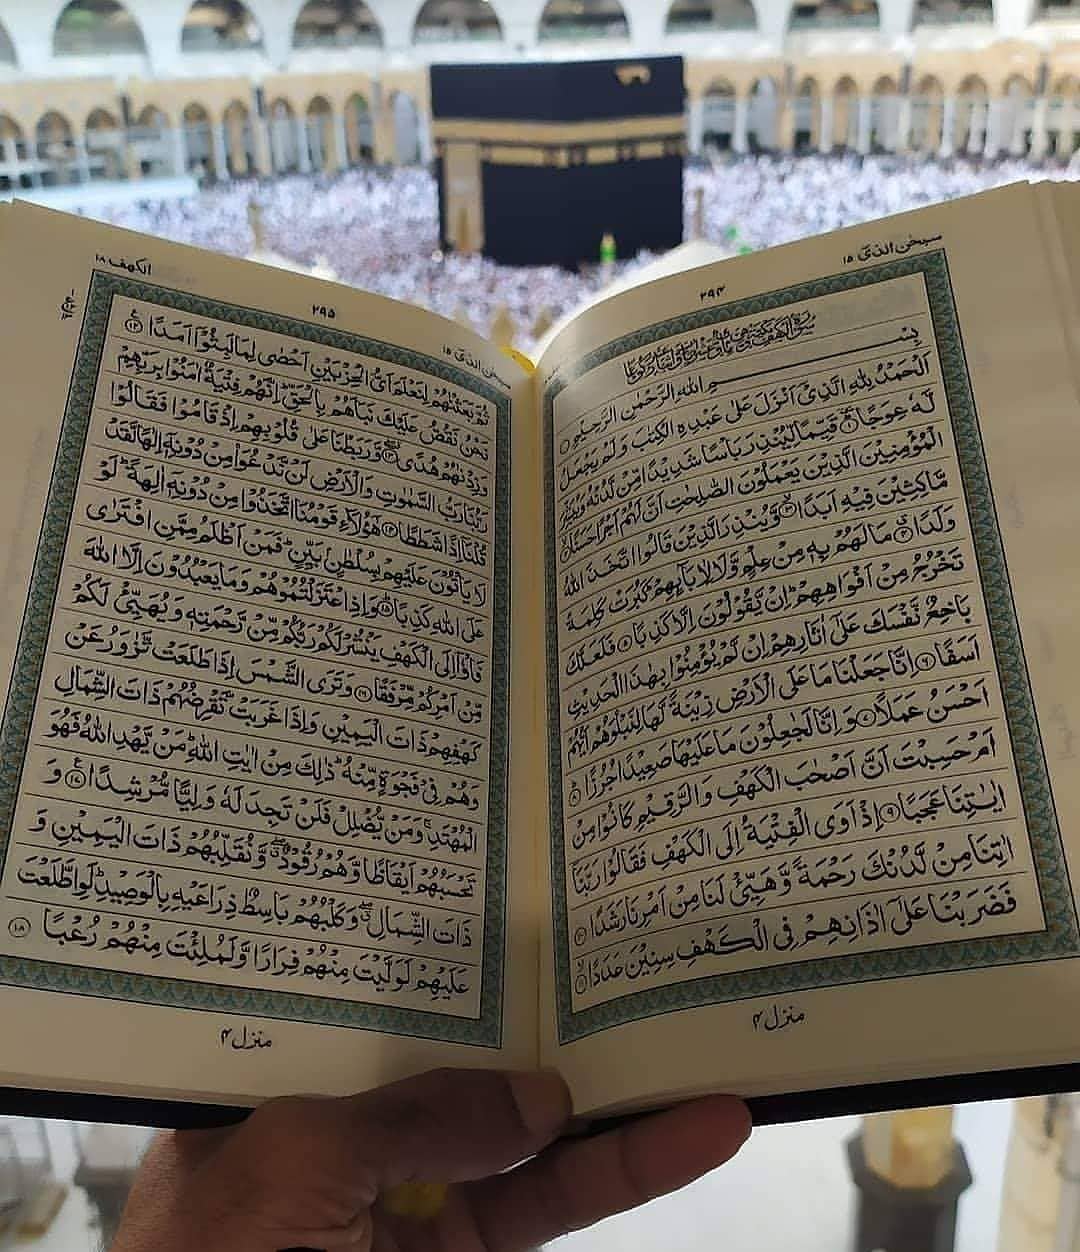 سبحٰن الذیٓ ١٥
٢٩٤
بِسْــــــمِ اللهِ الرَّحْمٰنِ الرَّحِيْمِ
اَلْحَمْدُ لِلّٰهِ الَّذِیْۤ اَنْزَلَ عَلٰى عَبْدِهِ الْكِتٰبَ وَ لَمْ یَجْعَلْ
لَّهٗ عِوَجًا ١ قَیِّمًا لِّیُنْذِرَ بَاْسًا شَدِیْدًا مِّنْ لَّدُنْهُ وَ یُبَشِّرَ
الْمُؤْمِنِیْنَ الَّذِیْنَ یَعْمَلُوْنَ الصّٰلِحٰتِ اَنَّ لَهُمْ اَجْرًا حَسَنًا ٢
مَّاكِثِیْنَ فِیْهِ اَبَدًا ٣ وَّ یُنْذِرَ الَّذِیْنَ قَالُوا اتَّخَذَ اللّٰهُ
وَلَدًا ٤ مَا لَهُمْ بِهٖ مِنْ عِلْمٍ وَّ لَا لِاٰبَآىِٕهِمْ كَبُرَتْ كَلِمَةً
تَخْرُجُ مِنْ اَفْوَاهِهِمْ اِنْ یَّقُوْلُوْنَ اِلَّا كَذِبًا ٥ فَلَعَلَّكَ
بَاخِعٌ نَّفْسَكَ عَلٰۤى اٰثَارِهِمْ اِنْ لَّمْ یُؤْمِنُوْا بِهٰذَا الْحَدِیْثِ
اَسَفًا ٦ اِنَّا جَعَلْنَا مَا عَلَى الْاَرْضِ زِیْنَةً لَّهَا لِنَبْلُوَهُمْ اَیُّهُمْ
اَحْسَنُ عَمَلًا ٧ وَ اِنَّا لَجٰعِلُوْنَ مَا عَلَیْهَا صَعِیْدًا جُرُزًا ٨
اَمْ حَسِبْتَ اَنَّ اَصْحٰبَ الْكَهْفِ وَ الرَّقِیْمِ كَانُوْا مِنْ
اٰیٰتِنَا عَجَبًا ٩ اِذْ اَوَى الْفِتْیَةُ اِلَى الْكَهْفِ فَقَالُوْا رَبَّنَاۤ
اٰتِنَا مِنْ لَّدُنْكَ رَحْمَةً وَّ هَیِّئْ لَنَا مِنْ اَمْرِنَا رَشَدًا ١٠
فَضَرَبْنَا عَلٰۤى اٰذَانِهِمْ فِی الْكَهْفِ سِنِیْنَ عَدَدًا ١١
منزل ٤
سبحٰن الذیٓ ١٥
٢٩٥
الكهف ١٨
ثُمَّ بَعَثْنٰهُمْ لِنَعْلَمَ اَیُّ الْحِزْبَیْنِ اَحْصٰى لِمَا لَبِثُوْۤا اَمَدًا ١٢
نَحْنُ نَقُصُّ عَلَیْكَ نَبَاَهُمْ بِالْحَقِّ اِنَّهُمْ فِتْیَةٌ اٰمَنُوْا بِرَبِّهِمْ
وَ زِدْنٰهُمْ هُدًى ١٣ وَّ رَبَطْنَا عَلٰى قُلُوْبِهِمْ اِذْ قَامُوْا فَقَالُوْا
رَبُّنَا رَبُّ السَّمٰوٰتِ وَ الْاَرْضِ لَنْ نَّدْعُوَاۡ مِنْ دُوْنِهٖۤ اِلٰهًا لَّقَدْ
قُلْنَاۤ اِذًا شَطَطًا ١٤ هٰۤؤُلَآءِ قَوْمُنَا اتَّخَذُوْا مِنْ دُوْنِهٖۤ اٰلِهَةً لَوْ
لَا یَاْتُوْنَ عَلَیْهِمْ بِسُلْطٰنٍ بَیِّنٍ فَمَنْ اَظْلَمُ مِمَّنِ افْتَرٰى
عَلَى اللّٰهِ كَذِبًا ١٥ وَ اِذِ اعْتَزَلْتُمُوْهُمْ وَ مَا یَعْبُدُوْنَ اِلَّا اللّٰهَ
فَاْوٗۤا اِلَى الْكَهْفِ یَنْشُرْ لَكُمْ رَبُّكُمْ مِّنْ رَّحْمَتِهٖ وَ یُهَیِّئْ لَكُمْ
مِّنْ اَمْرِكُمْ مِّرْفَقًا ١٦ وَ تَرَى الشَّمْسَ اِذَا طَلَعَتْ تَّزٰوَرُ عَنْ
كَهْفِهِمْ ذَاتَ الْیَمِیْنِ وَ اِذَا غَرَبَتْ تَّقْرِضُهُمْ ذَاتَ الشِّمَالِ
وَ هُمْ فِیْ فَجْوَةٍ مِّنْهُ ذٰلِكَ مِنْ اٰیٰتِ اللّٰهِ مَنْ یَّهْدِ اللّٰهُ فَهُوَ
الْمُهْتَدِ وَ مَنْ یُّضْلِلْ فَلَنْ تَجِدَ لَهٗ وَلِیًّا مُّرْشِدًا ١٧ وَ
تَحْسَبُهُمْ اَیْقَاظًا وَّ هُمْ رُقُوْدٌ وَّ نُقَلِّبُهُمْ ذَاتَ الْیَمِیْنِ وَ
ذَاتَ الشِّمَالِ وَ كَلْبُهُمْ بَاسِطٌ ذِرَاعَیْهِ بِالْوَصِیْدِ لَوِ اطَّلَعْتَ
عَلَیْهِمْ لَوَلَّیْتَ مِنْهُمْ فِرَارًا وَّ لَمُلِئْتَ مِنْهُمْ رُعْبًا ١٨
منزل ٤